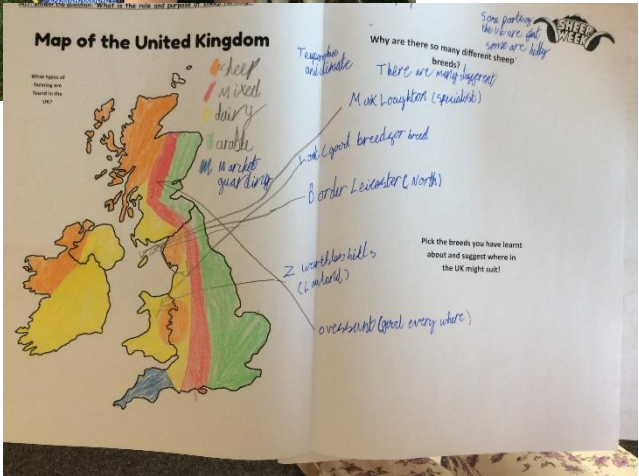 What is the role and purpose of sheep
Map of the United Kingdom
What types of
farming are
found in the
UK?
sheep
mixed
dairy
arable
Market
Temperature
and climate
Why are there so many different sheep
breeds?
Some parts of
the uk are flat
some are hilly
SHEEP
WEEK
There are many different
(specialist)
good breed for breed
Border Leicester (North)
Z wartbles hills
(Lowland)
(good every where)
Pick the breeds you have learnt
about and suggest where in
the UK might suit!